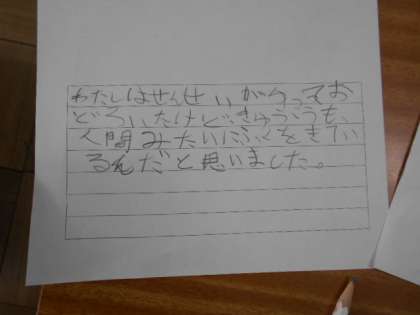 わたしはせんせいがらってお
どろいたけどきゅうりも、
人間みたいにふくをきてい
るんだと思いました。